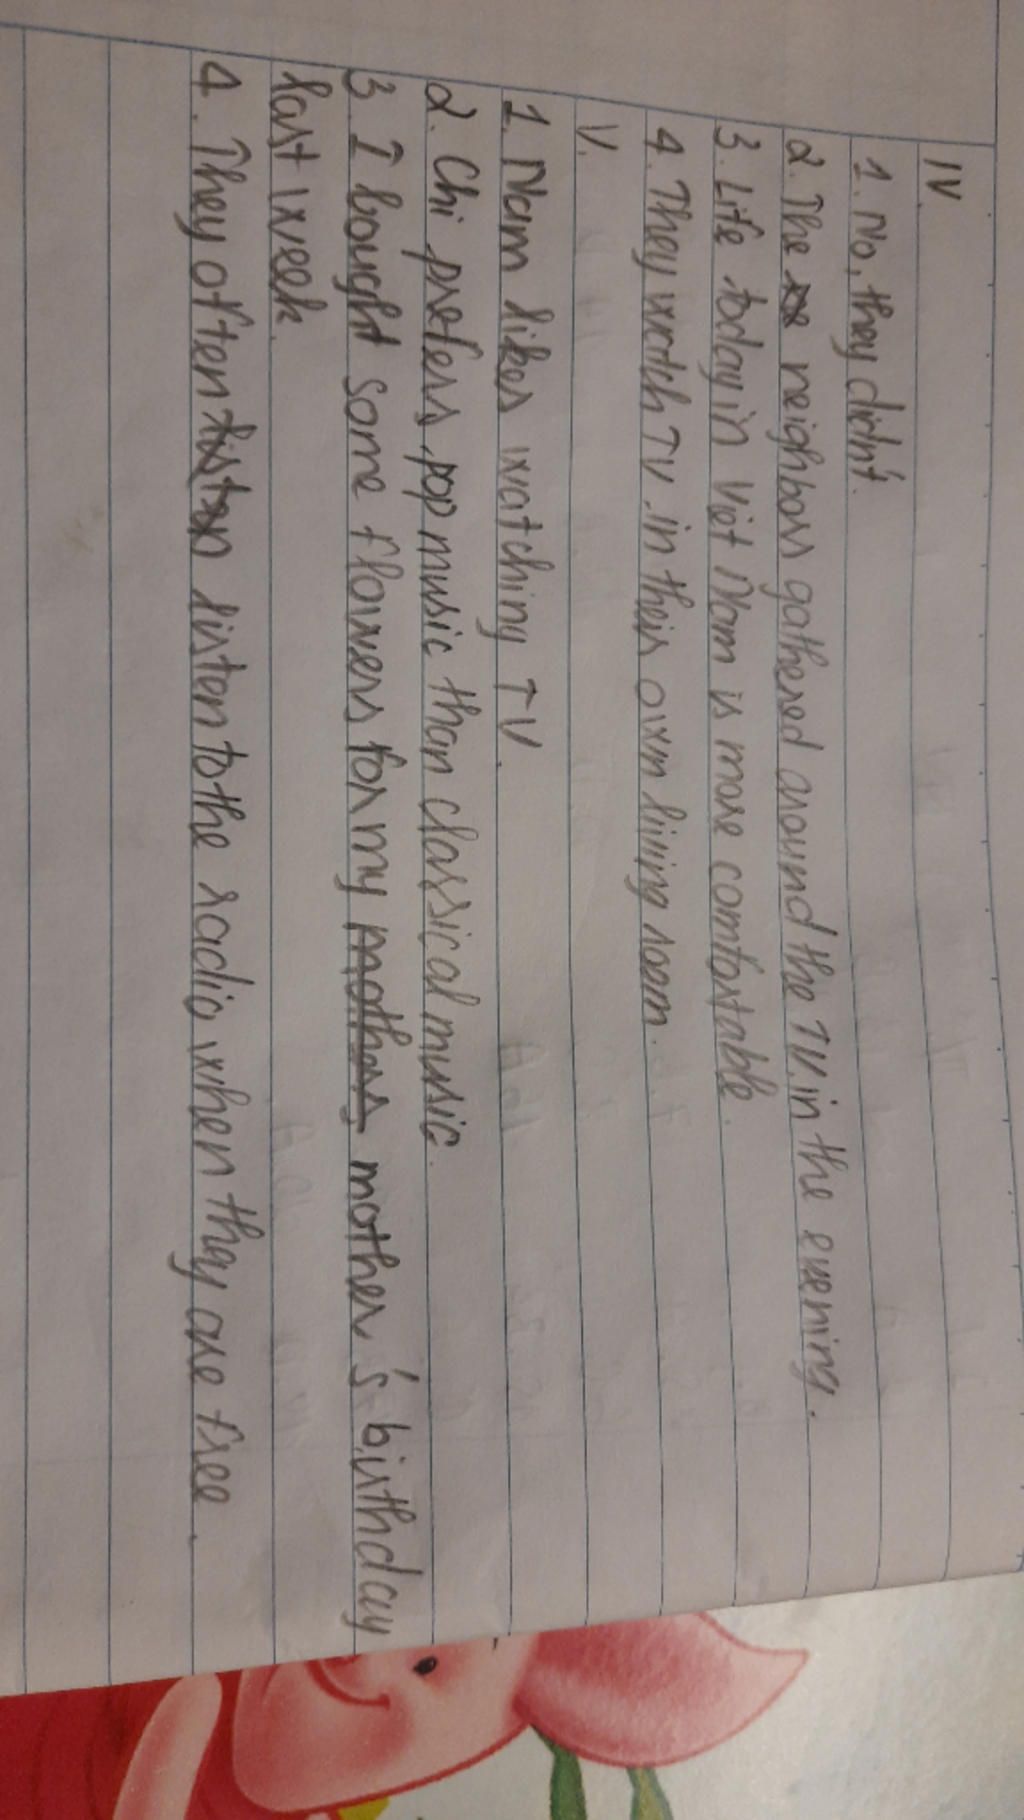 IV.
1. No, they didn't.
2. The neighbors gathered around the TV. in the evening.
3. Life today in Viet Nam is more comfortable.
4. They watch TV. in their own living room.
V.
1. Nam likes watching TV.
2. Chi prefers pop music than classical music.
3. I bought some flowers for my mother's birthday
last week.
4. They often listen to the radio when they are free.